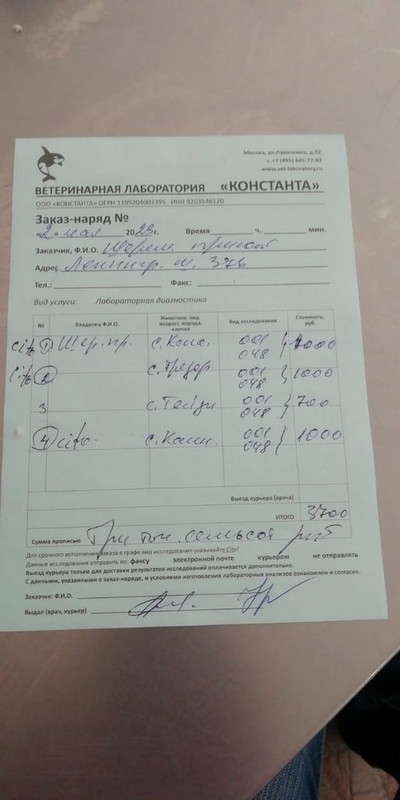 Москва, ул.Лавочкина, д.32
т. +7 (495) 645-77-93
www.vet-laboratorg.ru
ВЕТЕРИНАРНАЯ ЛАБОРАТОРИЯ «КОНСТАНТА»
ООО «КОНСТАНТА» ОГРН 1199204001395 ИНН 9203546120
Заказ-наряд №
2 мая 2023г. Время ч. мин.
Заказчик, Ф.И.О. Шерем. приют
Адрес Ленингр. ш. 37б
Тел.: Факс:
Вид услуги: Лабораторная диагностика
№ Владелец Ф.И.О. Животное, вид возраст, порода, кличка Вид исследования Стоимость, руб.
cito 1 Шер. пр. с. 001 048 1000
cito 2 с. Трезор 001 048 1000
3 с. Тейзи 001 048 700
4 cito. с. 001 048 1000
Выезд курьера (врача)
ИТОГО 3700
Сумма прописью Три тыс. семьсот руб
Для срочного исполнения заказа в графе вид исследования указывайте Cito!
Данные исследования отправить по: факсу электронной почте курьером не отправлять
Выезд курьера только для доставки результатов исследований оплачивается дополнительно.
С данными, указанными в заказ-наряде, и условиями изготовления лабораторных анализов ознакомлен и согласен:
Заказчик: Ф.И.О.
Выдал (врач, курьер)